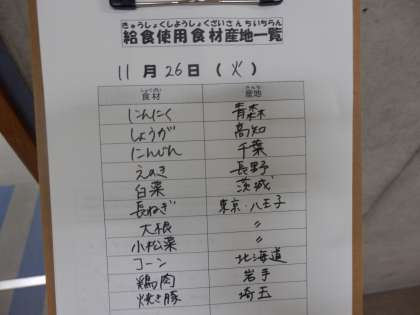 きゅうしょくしようしょくざいさんちいちらん
給食使用食材産地一覧
11月26日(火)
しょくざい さんち
食材 産地
にんにく 青森
しょうが 高知
にんじん 千葉
えのき 長野
白菜 茨城
長ねぎ 東京・八王子
大根 〃
小松菜 〃
コーン 北海道
鶏肉 岩手
焼き豚 埼玉